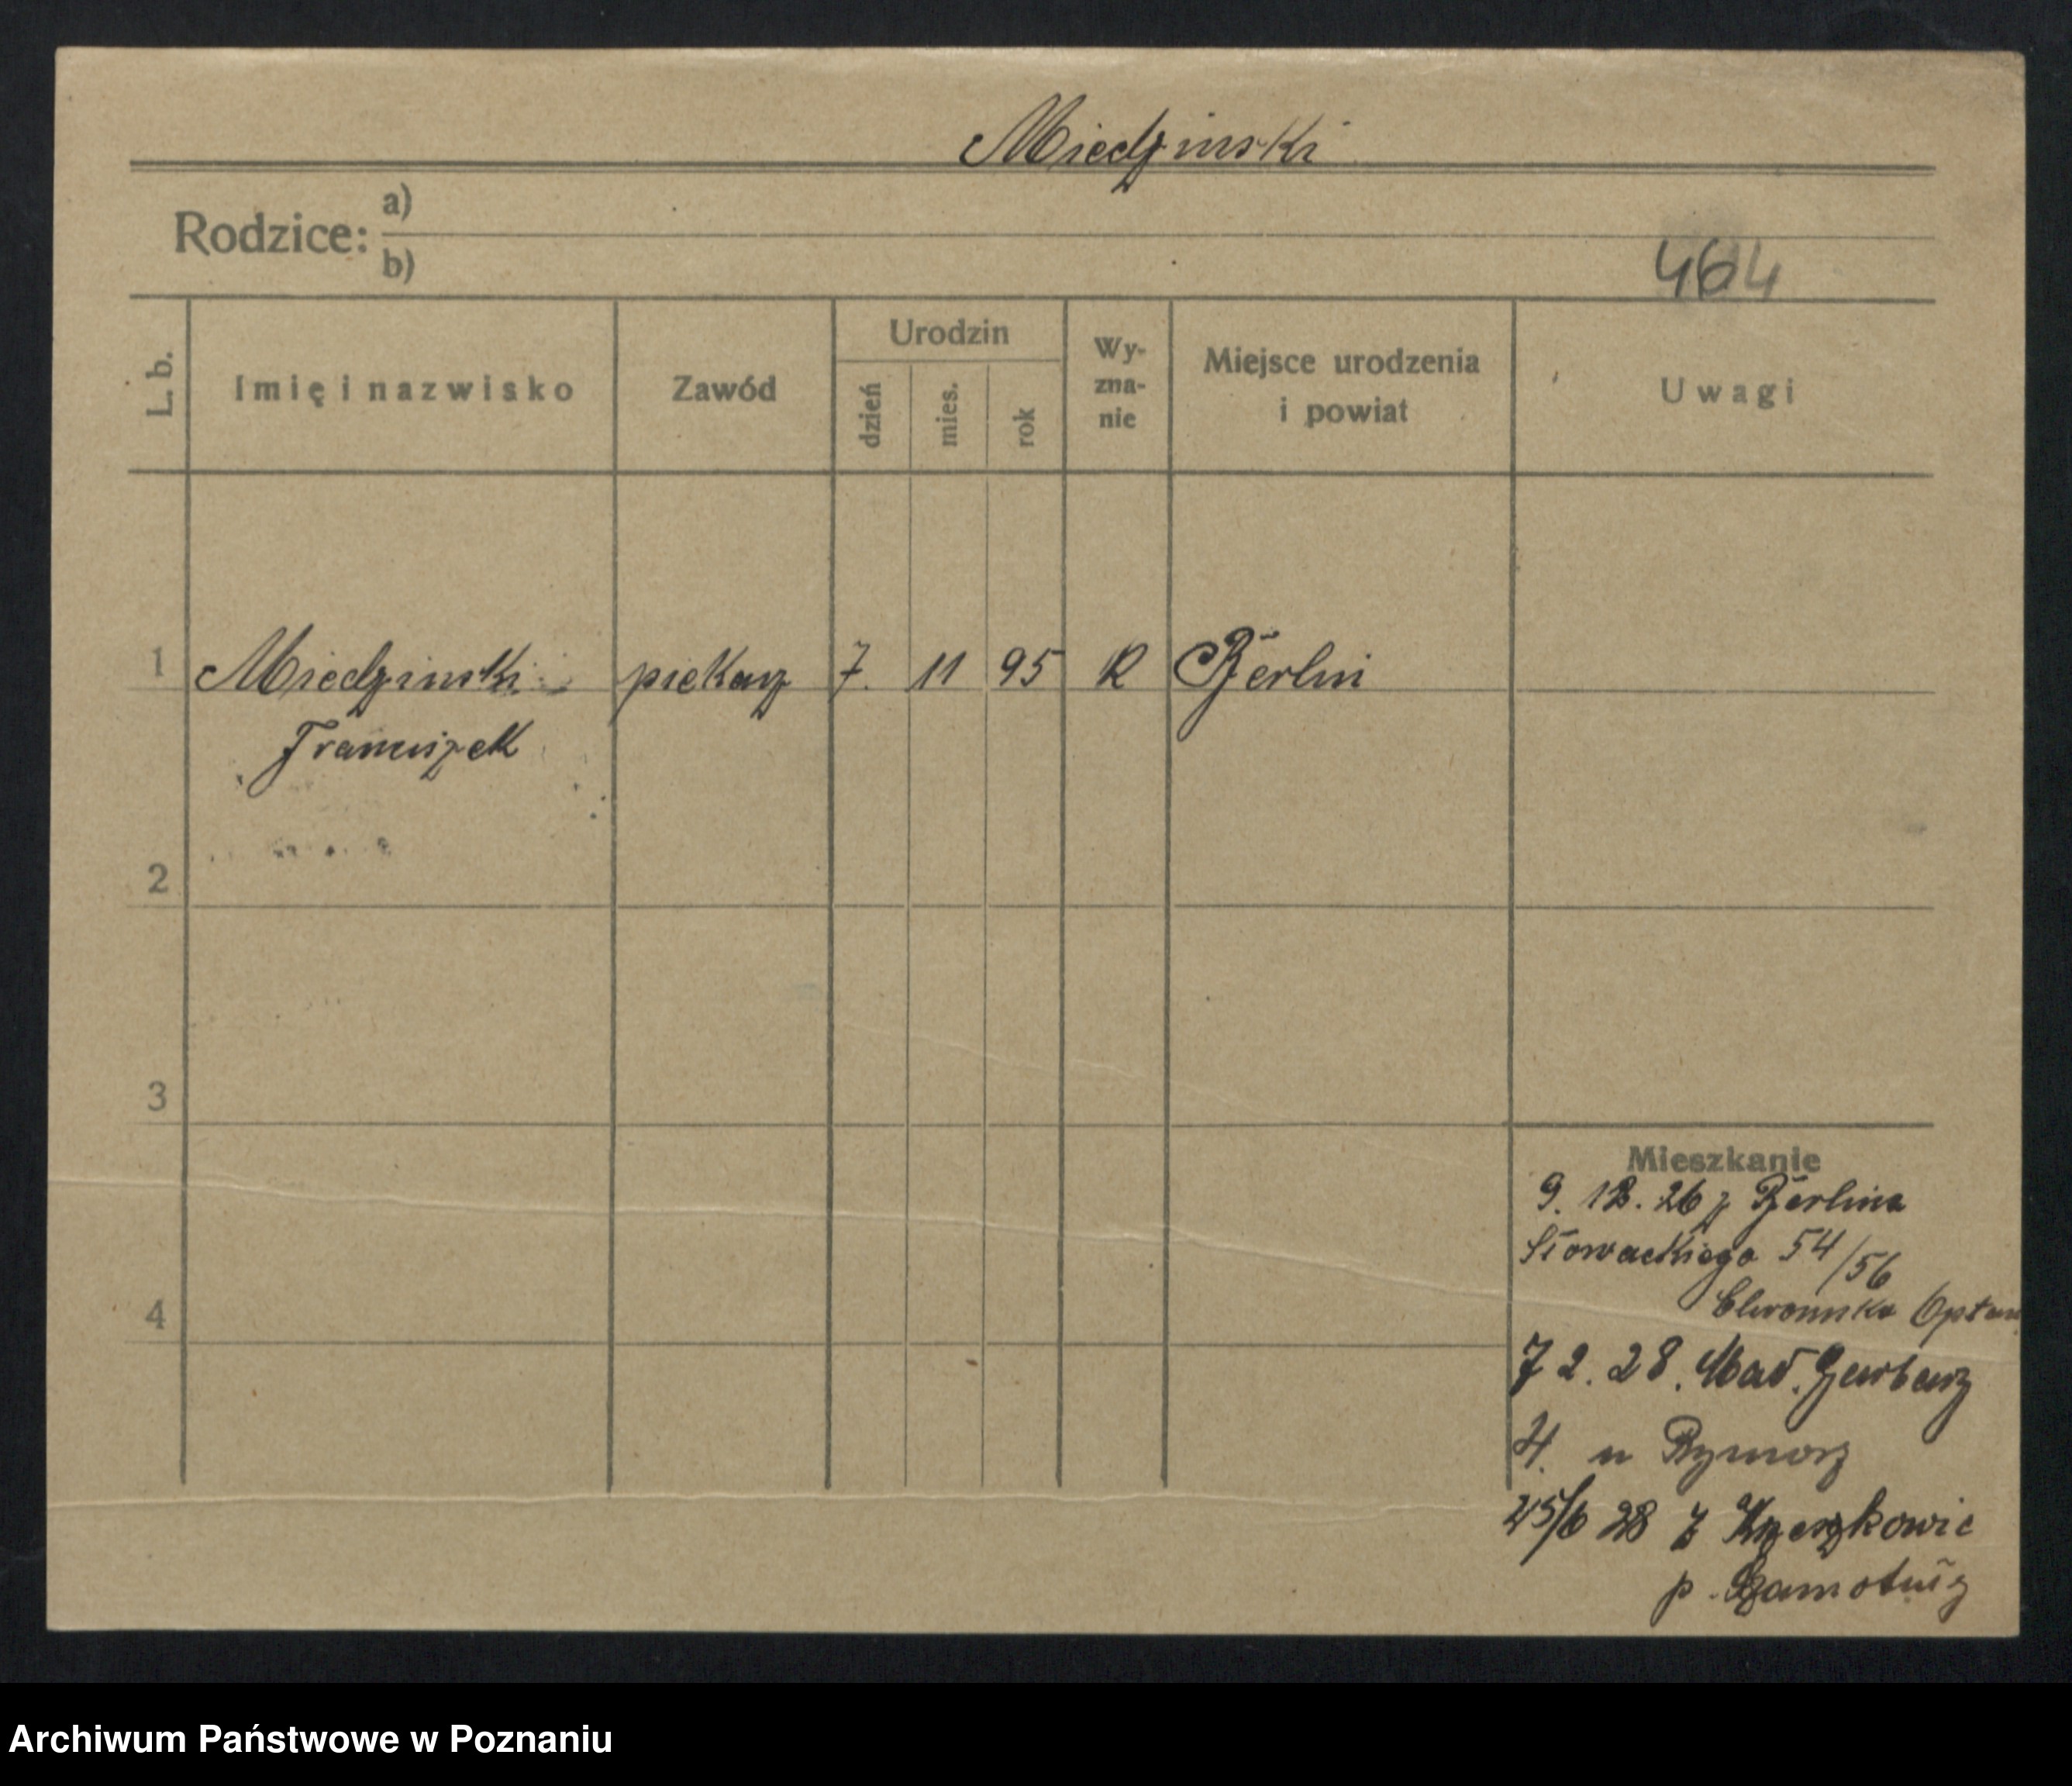 Miedzinski
Rodzice: a)
b)
464
L. b.
Imię i nazwisko
Zawód
Urodzin
dzień
mies.
rok
Wy-
zna-
nie
Miejsce urodzenia
i powiat
Uwagi
1 Miedzinski piekarz 7. 11 95 R Berlin
Franciszek
2
3
4
Mieszkanie
9. 12. 26 z Berlina
Słowackiego 54/56
7 2. 28. Mał. Garbarz
4. u Rymarz
25/6 28 z
p. Szamotuły
Archiwum Państwowe w Poznaniu